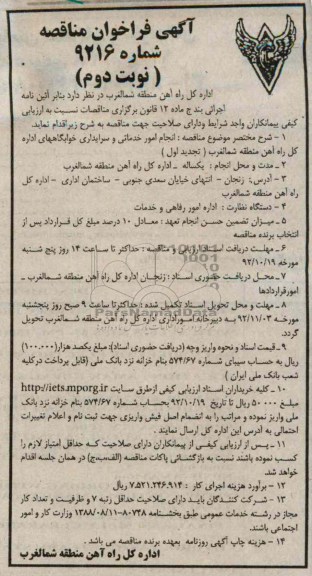 آگهی فراخوان مناقصه
شماره ۹۲۱۶
( نوبت دوم )
اداره کل راه آهن منطقه شمالغرب در نظر دارد بنابر آئین نامه
اجرائی بند ج ماده ۱۲ قانون برگزاری مناقصات نسبت به ارزیابی
کیفی پیمانکاران واجد شرایط ودارای صلاحیت جهت مناقصه به شرح زیراقدام نماید.
۱ - شرح مختصر موضوع مناقصه : انجام امور خدماتی و سرایداری خوابگاههای اداره
کل راه آهن منطقه شمالغرب ( تجدید اول )
۲ - مدت و محل انجام : یکساله ـ اداره کل راه آهن منطقه شمالغرب
۳ - آدرس: زنجان - انتهای خیابان سعدی جنوبی - ساختمان اداری - اداره کل
راه آهن منطقه شمالغرب
۴ - دستگاه نظارت : اداره امور رفاهی و خدمات
۵ - میزان تضمین حسن انجام تعهد : معادل ۱۰ درصد مبلغ کل قرارداد پس از
انتخاب برنده مناقصه
۶ - مهلت دریافت اسناد ارزیابی مناقصه : حداکثر تا ساعت ۱۴ روز پنج شنبه
مورخه ۹۲/۱۰/۱۹
۷ - محل دریافت حضوری اسناد : زنجان اداره کل راه آهن منطقه شمالغرب -
امورقراردادها
۸ - مهلت و محل تحویل اسناد تکمیل شده : حداکثرتا ساعت ۹ صبح روز پنجشنبه
مورخه ۹۲/۱۱/۰۳ به دبیرخانه اموراداری اداره کل راه آهن منطقه شمالغرب تحویل
گردد.
۹ - قیمت اسناد و نحوه واریز وجه (دریافت حضوری اسناد): مبلغ یکصد هزار(۱۰۰,۰۰۰)
ریال به حساب سیبای شماره ۵۷۴/۶۷ بنام خزانه نزد بانک ملی (قابل پرداخت درکلیه
شعب بانک ملی ایران )
۱۰ - کلیه خریداران اسناد ارزیابی کیفی ازطرق سایت http://iets.mporg.ir
مبلغ ۵۰۰۰۰ ریال تا تاریخ ۹۲/۱۰/۱۹ بحساب شماره ۵۷۴/۶۷ بنام خزانه نزد بانک
ملی واریز نموده و مراتب را به انضمام اصل فیش واریزی جهت ثبت نام و اعلام تغییرات
احتمالی به آدرس این اداره کل ارسال نمایند .
۱۱ - پس از ارزیابی کیفی از پیمانکاران دارای صلاحیت که حداقل امتیاز لازم را
کسب نموده باشند نسبت به بازگشائی پاکات مناقصه (الف،ب،ج) در همان جلسه اقدام
خواهد شد.
۱۲ - برآورد هزینه اجرای کار : ۷.۵۲۱.۲۴۶.۹۱۴ ریال
۱۳ - شرکت کنندگان باید دارای صلاحیت حداقل رتبه ۷ و ظرفیت و تعداد کار
مجاز در رشته خدمات عمومی طبق بخشنامه ۸۰۷۳۸-۱۳۸۸/۰۸/۱۱ وزارت کار و امور
اجتماعی باشند.
۱۴ - هزینه چاپ آگهی روزنامه بعهده برنده مناقصه می باشد .
اداره کل راه آهن منطقه شمالغرب